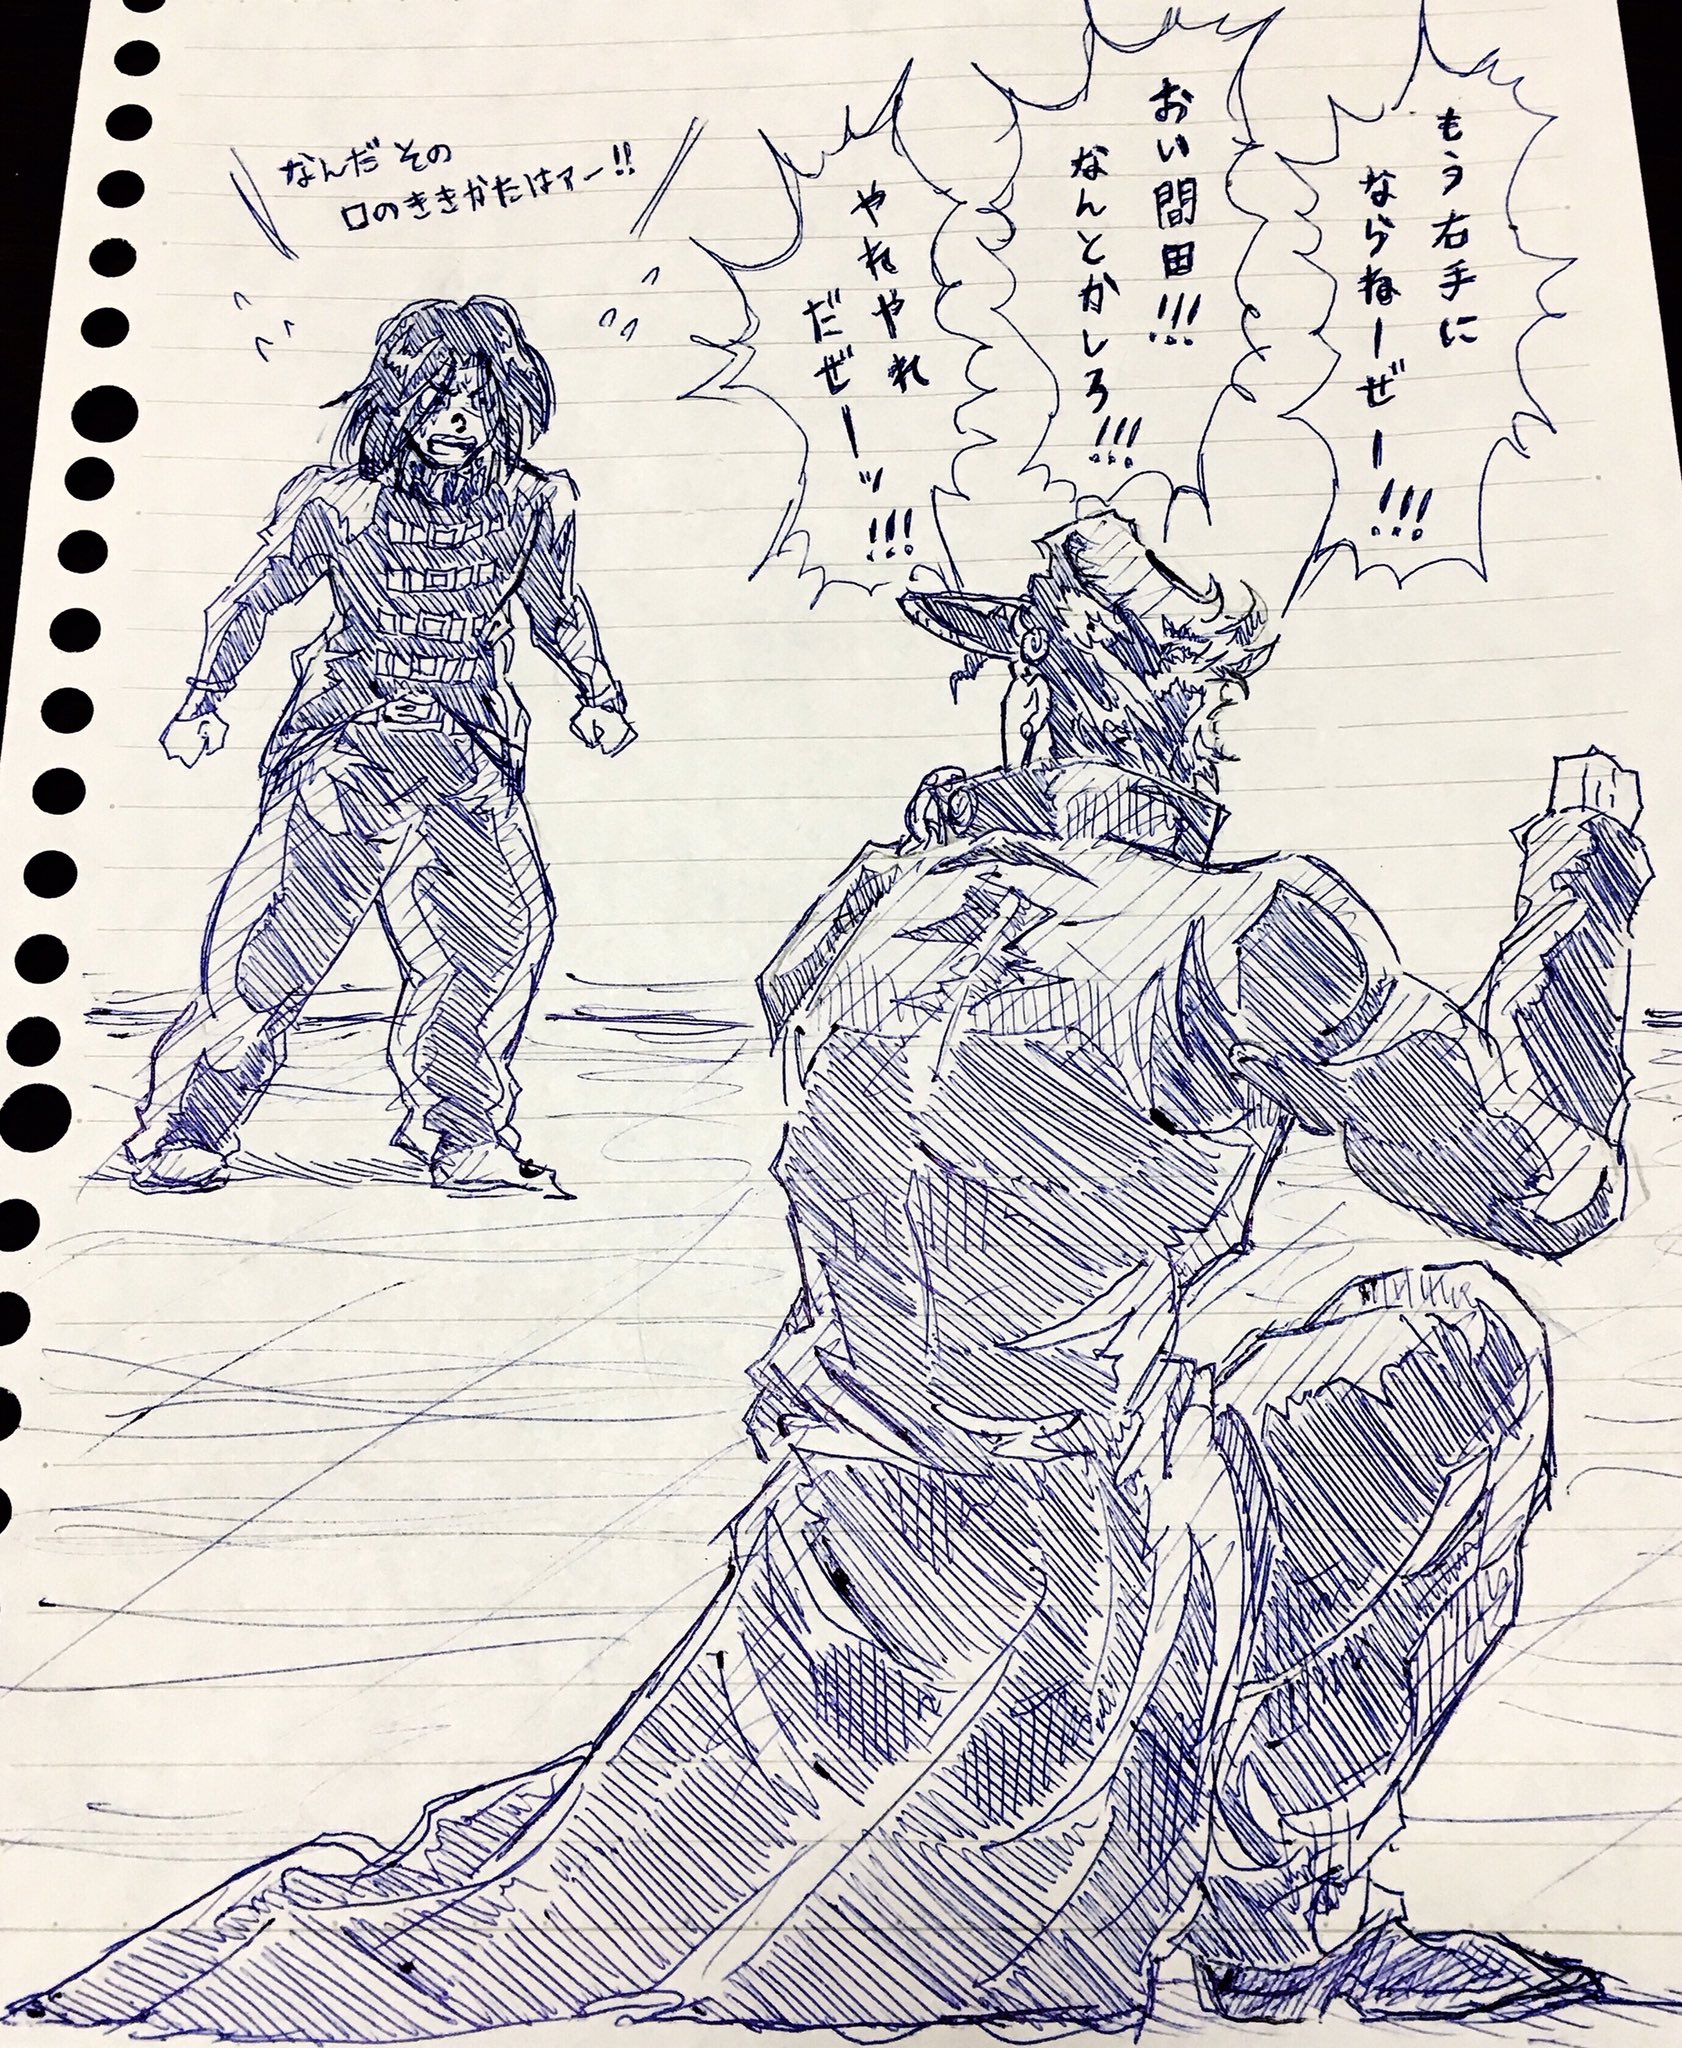 もう右手に
ならねーぜー!!!
おい間田!!!
なんとかしろ!!!
やれやれ
だぜーッ!!!
なんだその
口のききかたはァー!!